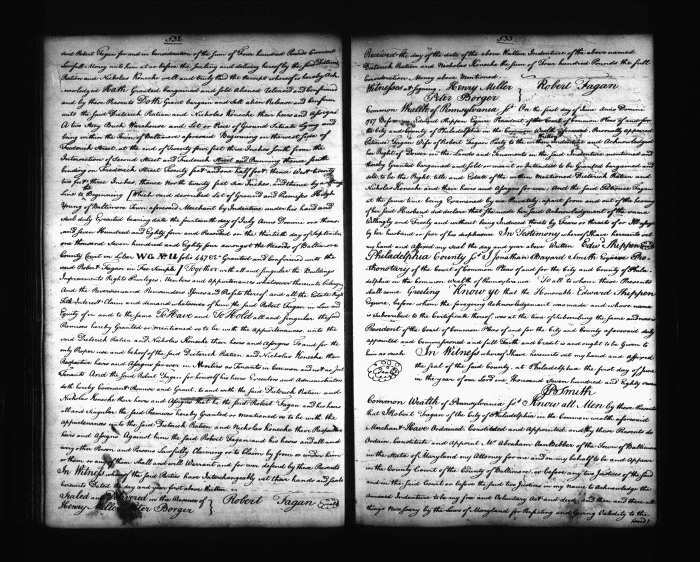 532
and Robert Fagan for and in Consideration of the sum of Four hundred Pounds Current
Lawfull Money unto him at or before the Sealing and delivery hereof by the said Dieterick
Ratien and Nicholas Konecke well and truly the Receipt whereof is hereby Ack
nowledged Hath Granted bargained and sold Aliened Released and Confirmed
and by these Presents Doth Grant bargain and sell alien Release and Confirm
unto the said Dieterick Ratien and Nicholas Konecke their heirs and assigns
A two Story Brick Warehouse and Lot or Piece of Ground Situate Lying and
being within the Town of Baltimore aforesaid Beginning on the west side of
Frederick Street at the end of Twenty five feet three Inches South from the
Intersection of Second Street and Frederick Street and Running thence south
binding on Frederick Street Twenty feet and one half foot thence West twenty
feet three Inches, thence North twenty feet Six Inches, and thence by a
Line to Beginning Which said described Lot of Ground and Premises Ralph
Young of Baltimore Town aforesaid Merchant by Indenture under his hand and
Seal duly Executed bearing date the fourteenth day of July Anno Domini one thous
and seven Hundred and Eighty four and Recorded on the thirtieth day of September
one thousand Seven hundred and Eighty four amongst the Records of Baltimore
County Court in Liber W G No. folio Granted and Confirmed unto the
said Robert Fagan in Fee Simple Together with all and singular the Buildings
Improvements Rights Privileges and appurtenances whatsoever thereunto belong
And the Reversions and Remainders and Profits thereof and all the Estate Right
Title Interest Claim and demand whatsoever of him the said Robert Fagan in Law and
Equity of in and to the same To Have and To Hold all and singular the said
Premises hereby Granted or mentioned so to be with the appurtenances unto the
said Dieterick Ratien and Nicholas Konecke their heirs and Assigns To and for the
only Proper use and behoof of the said Dieterick Ratien and Nicholas Konecke their
Respective heirs and Assigns for ever as Tenants in Common and not as Joint
Tenants And the said Robert Fagan for himself his heirs Executors and Administrators
doth hereby Covenant Promise and Grant to and with the said Dieterick Ratien and
Nicholas Konecke their heirs and Assigns that he the said Robert Fagan and his heirs
all and singular the said Premises hereby Granted or mentioned so to be with the
appurtenances unto the said Dieterick Ratien and Nicholas Konecke their Respective
heirs and Assigns Against him the said Robert Fagan and his heirs and all and
any other Person and Persons Lawfully Claiming or to Claim by from or under him
or them or any of them Shall and will Warrant and for ever defend by these Presents
In Witness whereof the said Parties have Interchangeably set their hands and seals
hereunto Dated the day and year first above Written
Sealed and Delivered in the Presence of Robert Fagan
Henry Miller Peter Borger
533
Received the day of the date of the above Written Indenture of the above named
Dieterick Ratien and Nicholas Konecke the sum of Four hundred Pounds the full
Consideration Money above Mentioned
Witnesses at signing Henry Miller Robert Fagan
Peter Borger
Common Wealth of Pennsylvania Ss. On the first day of June Anno Domini
1787 Before me Edward Shippen Esquire President of the Court of Common Pleas of and for
the City and County of Philadelphia in the Common Wealth aforesaid Personally appeared
Wife of Robert Fagan Party to the within Indenture and Acknowledged
her Right of Dower in the Lands and Tenements in the said Indenture mentioned and
thereby Granted bargained and sold or meant or Intended to be Granted bargained and
sold to be the Right title and Estate of the within Mentioned Dieterick Ratien and
Nicholas Konecke and their heirs and Assigns for ever And the said Fagan
at the same time being Examined by me Privately apart from and out of the hearing
of her said Husband did declare that She made her said Acknowledgement of the same
Willingly and freely and without being Induced thereto by fears or threats of or Ill usage
by her husband or fear of his displeasure In Testimony whereof I have hereunto set
my hand and affixed my seal the day and year above Written Edw Shippen
Philadelphia County Ss I Jonathan Bayard Smith Esquire Pro
thonotary of the Court of Common Pleas of and for the City and County of Phila
delphia in the Common Wealth of Pennsylvania To all to whom these Presents
shall come Greeting Know ye that the Honourable Edward Shippen
Esquire, before whom the foregoing Acknowledgement was made and whose name
is Subscribed to the Certificate thereof was at the time of Subscribing the same and now is
President of the Court of Common Pleas of and for the City and County aforesaid duly
appointed and Commissioned and full Faith and Credit is and ought to be Given to
him as such In Witness whereof I have hereunto set my hand and affixed
the seal of the said County at Philadelphia the first day of June
in the year of our Lord one thousand Seven hundred and Eighty seven
J B Smith
Common Wealth of Pennsylvania Ss. Know all Men by these Presents
that I Robert Fagan of the City of Philadelphia in the Common wealth of Pennsylvania
Merchant Have Ordained Constituted and Appointed and by these Presents do
Ordain Constitute and Appoint Mr Abraham of the Town of Baltimore
in the State of Maryland my Attorney for me and in my behalf to be and appear
in the County Court of the County of Baltimore or before any two Justices of the said
and in the said Court or before the said two Justices in my Name to Acknowledge the
annexed Indenture to be my free and Voluntary Act and deed and then and there all
things Necessary by the Laws of Maryland for Perfecting and Giving Validity to the